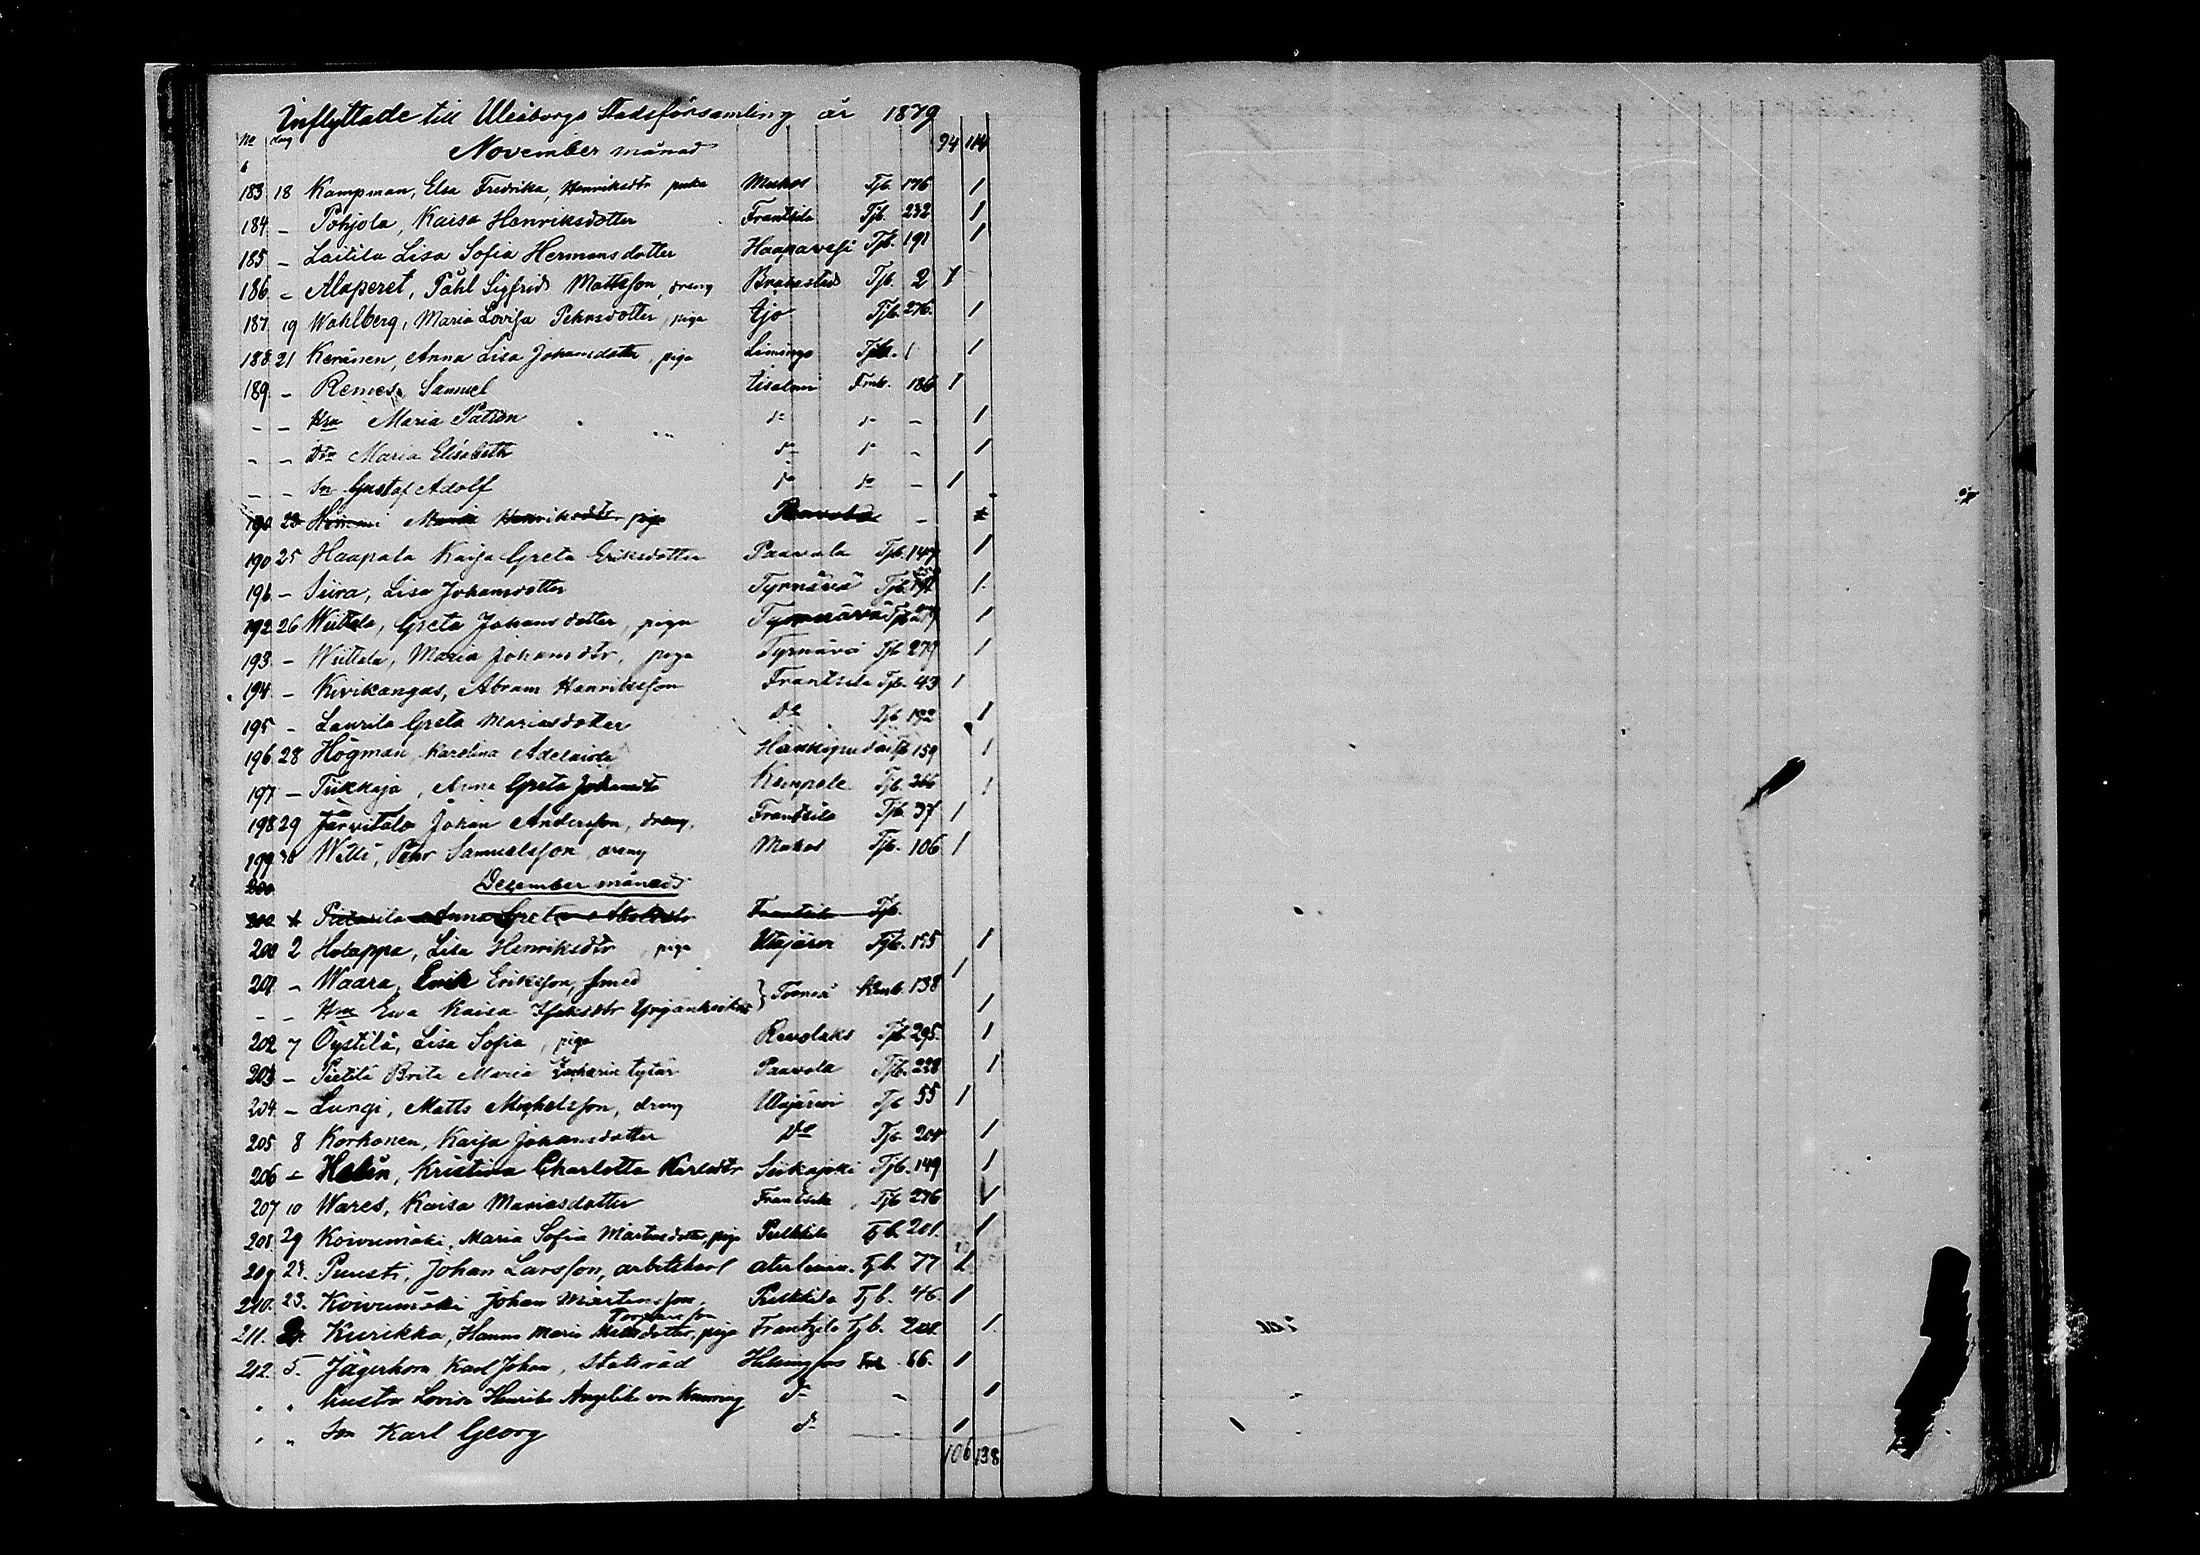 Inflyttade till Uleåborgs Stadsförsamling år 1879
No dag November månad 94 114
183 18 Kampman, Elsa Fredrika, Henriksdtr Muhos Tjb. 176 1
184 – Pohjola, Kaisa Henriksdotter Frantsila Tjb. 232 1
185 – Laitila Lisa Sofia Hermansdotter Haapavesi Tjb. 191 1
186 – Alaperet, Påhl Sigfrid Mattsson, dreng Brahestad Tjb. 2 1
187 19 Wahlberg, Maria Lovisa Pehrsdotter, piga Ijo Tjb. 276. 1
188 21 Keränen, Anna Lisa Johansdotter, piga Limingo Tjb. 1
189 – Remes, Samuel Iisalmi Fmb. 186 1
– – Hru Maria Putson do do – 1
– – Dtr Maria Elisabeth do do – 1
– – Sn Gustaf Adolf do do – 1
190 23 Maria Henriksdtr piga Paavola –
190 25 Haapala Kaisa Greta Eriksdotter Paavola Tjb. 147 1
191 – Siira, Lisa Johansdotter Tyrnävä Tjb. 1
192 26 Wiitala, Greta Johansdotter, piga Tyrnävä Tjb 279 1
193 – Wiitala, Maria Johansdtr, piga Tyrnävä Tjb 279 1
194 – Kivikangas, Abram Henriksson Frantsila Tjb. 43 1
195 – Laurila Greta Mariasdotter do Tjb 192 1
196 28 Högman, Karolina Adelaide Tjb 159 1
197 – Tiikkaja, Anna Greta Johansdtr Kempele Tjb. 266 1
198 29 Järvitalo Johan Andersson, dreng. Frantsila Tjb. 37 1
199 30 Willi, Pehr Samuelsson, dreng Muhos Tjb. 106 1
200 December månad
Pietarila Anna Greta Frantsila Tjb.
200 2 Holappa, Lisa Henriksdtr, piga Utajärvi Tjb. 155 1
201 – Waara, Erik Eriksson, smed 1
– – Hru Ewa Kaisa Isaksdtr } Torneå Kmb. 138 1
202 7 Öystilä, Lisa Sofia, piga Revolaks Tjb. 295. 1
203 – Pietilä Brita Maria Zacharintytär Paavola Tjb. 228 1
204 – Lungi, Matts Michelsson, dreng Utajärvi Tjb 55 1
205 8 Korhonen, Kaisa Johansdotter Do Tjb. 204 1
206 – Helin, Kristina Charlotta Karlsdtr Siikajoki Tjb. 149 1
207 10 Wares, Kaisa Mariasdotter Frantsila Tjb 276 1
208 29 Koivumäki, Maria Sofia Mårtensdotter, piga Pulkkila Tjb. 201. 1
209 23. Puusti, Johan Larsson, arbetskarl Tjb. 77 1
210. 23. Koivumäki Johan Mårtensson, Pulkkila Tjb. 46. 1
211. Kurikka, Hanna Maria Mattsdotter, piga Frantsila Tjb. 208. 1
212. 5. Jägerhorn Karl Johan, Statsråd Helsingfors Fmb. 66. 1
" " hustru Lovisa Henrika Angelik von Knorring do – 1
" " Son Karl Georg do 1
106 138